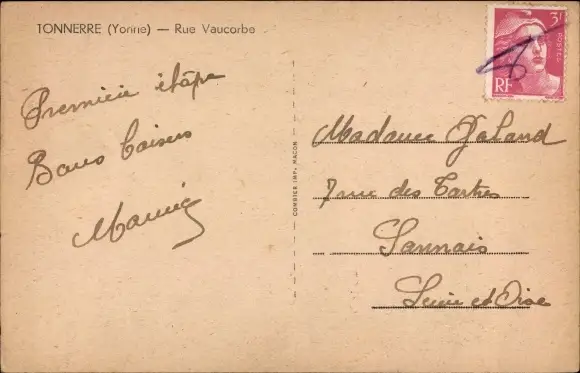 TONNERRE (Yonne) — Rue Vaucorbe
Première étape
Bons baisers
Mamie
COMBIER IMP. MACON
3F
RF
Madame Galand
7 rue des Tartres
Sannois
Seine et Oise